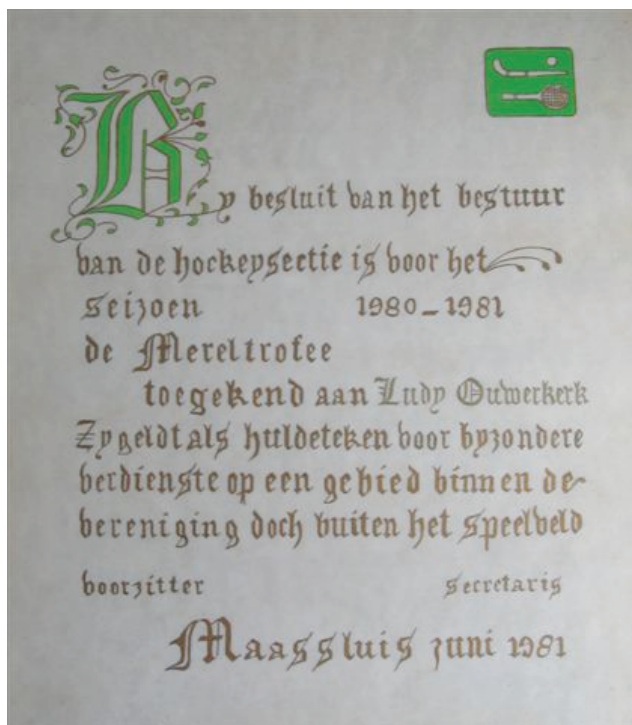 By besluit van het bestuur
van de hockeysectie is voor het
seizoen 1980-1981
de Mereltrofee
toegekend aan Ludy Ouwerkerk
Zy geldt als huldeteken voor byzondere
verdienste op een gebied binnen de
vereniging doch buiten het speelveld
voorzitter secretaris
Maassluis juni 1981